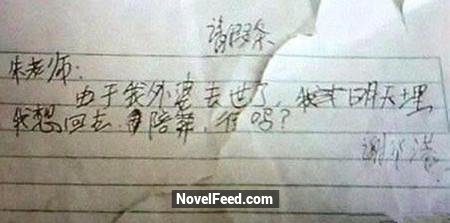 请假条
朱老师：
由于我外婆去世了，我 明天埋
我想回去 陪葬，行吗？
谢
NovelFeed.com